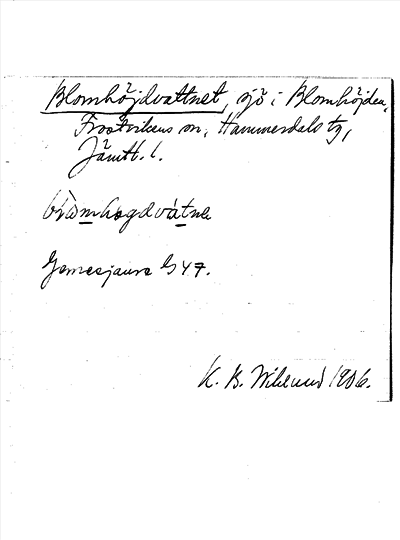 Blomhöjdvattnet, sjö i Blomhöjden,
Frostvikens sn, Hammerdals tg,
Jämtl. l.
Gemesjaure G 47.
K. B. Wiklund 1906.